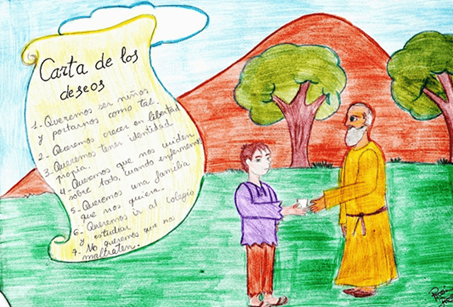 Carta de los
deseos
1- Queremos ser niños
y portarnos como tal.
2- Queremos crecer en libertad
3- Queremos tener identidad
propia.
4- Queremos que nos cuiden
sobre todo, cuando enfermemos
5- Queremos una familia
que nos quiera.
6- Queremos ir al colegio
y estudiar.
7- No queremos que nos
maltraten.